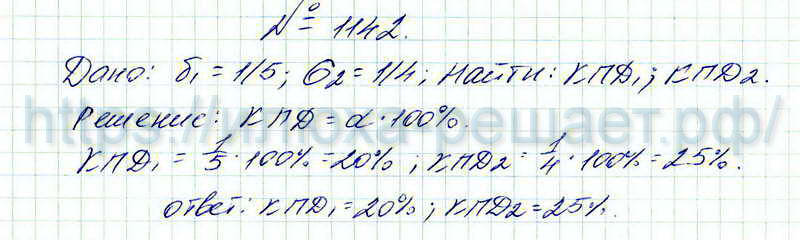 № 1142.
Дано: б₁ = 1/5; б₂ = 1/4; Найти: КПД₁; КПД2.
Решение: КПД = α · 100%.
КПД₁ = 1/5 · 100% = 20%; КПД2 = 1/4 · 100% = 25%.
ответ: КПД₁ = 20%; КПД2 = 25%.